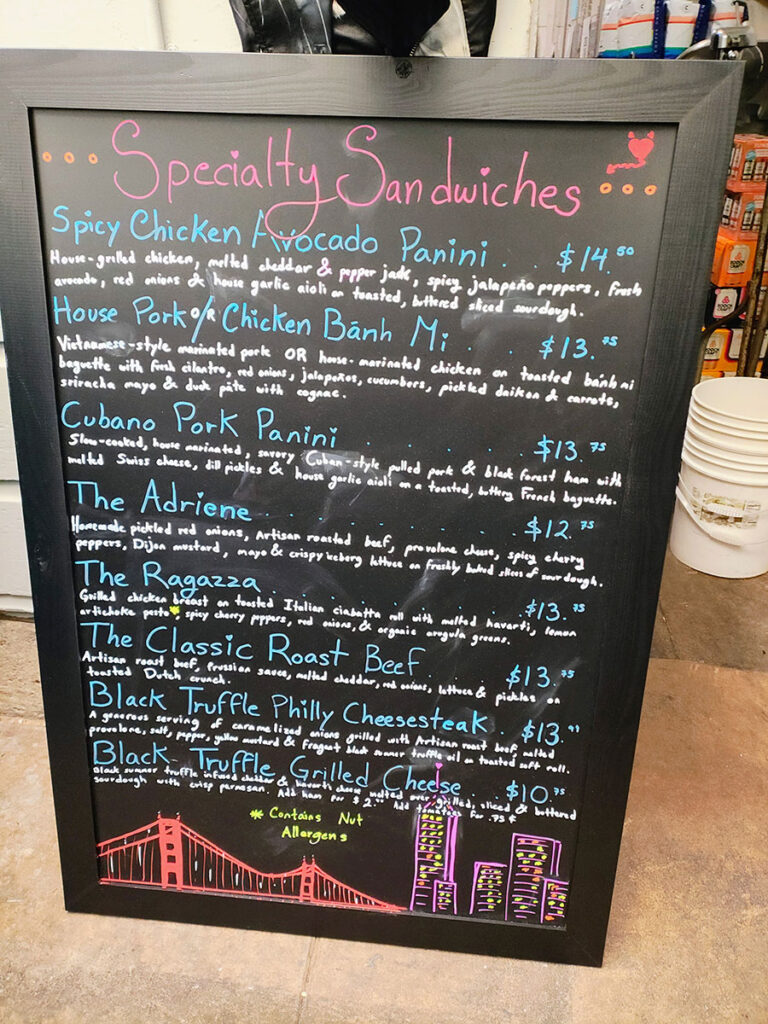 Specialty Sandwiches
Spicy Chicken Avocado Panini . . $14.50
House-grilled chicken, melted cheddar & pepper jack, spicy jalapaño peppers, fresh
avocado, red onions & house garlic aioli on toasted, buttered sliced sourdough.
House Pork OR / Chicken Bánh Mi . . . $13.75
Vietnamese-style marinated pork OR house-marinated chicken on toasted bánh mi
baguette with fresh cilantro, red onions, jalapeños, cucumbers, pickled daikon & carrots,
sriracha mayo & duck pâte with cognac.
Cubano Pork Panini . . . . . $13.75
Slow-cooked, house marinated, savory Cuban-style pulled pork & black forest ham with
melted Swiss cheese, dill pickles & house garlic aioli on a toasted, buttery French baguette.
The Adriene . . . . . . . . $12.75
Homemade pickled red onions, Artisan roasted beef, provolone cheese, spicy cherry
peppers, Dijon mustard, mayo & crispy iceberg lettuce on freshly baked slices of sourdough.
The Ragazza . . . . . . . . $13.75
Grilled chicken breast on toasted Italian ciabatta roll with melted havarti, lemon
artichoke pesto*, spicy cherry peppers, red onions, & organic arugula greens.
The Classic Roast Beef . . . $13.75
Artisan roast beef, Prussian sauce, melted cheddar, red onions, lettuce & pickles on
toasted Dutch crunch.
Black Truffle Philly Cheesesteak . $13.99
A generous serving of caramelized onions grilled with Artisan roast beef, melted
provolone, salt, pepper, yellow mustard & fragant black summer truffle oil on toasted soft roll.
Black Truffle Grilled Cheese . . $10.75
Black summer truffle infused cheddar & havarti cheese melted over grilled, sliced & buttered
sourdough with crisp parmesan. Add ham for $2. Add tomatoes for .75¢
* Contains Nut
Allergens